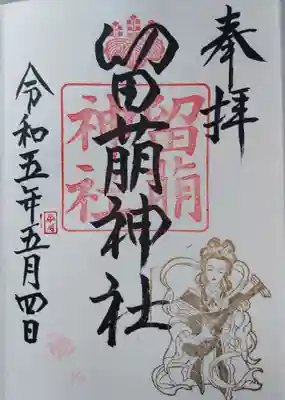 奉拝
留萠神社
留萠
神社
令和五年五月四日